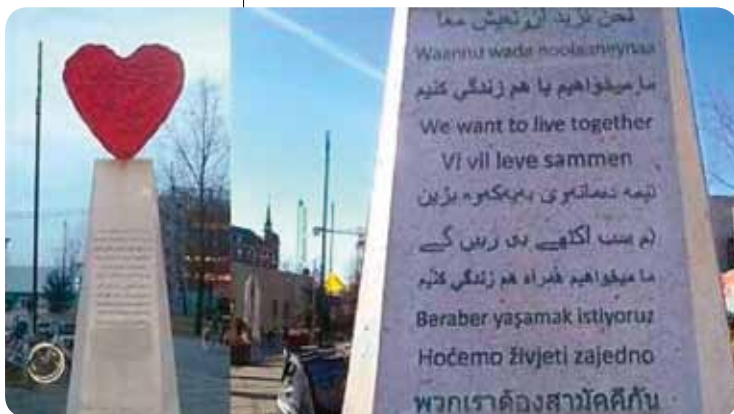 نحن نريد ان نعيش معا
Waannu wada noolaaneynaa
ما میخواهیم با هم زندگی کنیم
We want to live together
Vi vil leve sammen
ئێمە دەمانەوێ بەیەکەوە بژین
ہم سب اکٹھے ہی رہیں گے
ما میخواهیم همراه هم زندگی کنیم
Beraber yaşamak istiyoruz
Hoćemo živjeti zajedno
พวกเราต้องสามัคคีกัน